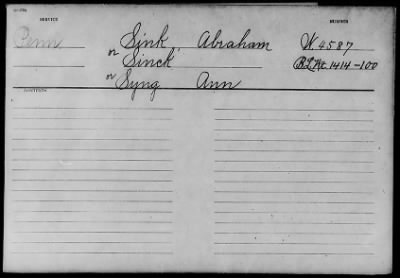 SERVICE NUMBER
Penn Sink Abraham W. 4587
or Sinck B.L.Wt. 1414-100
or Syng Ann
CONTENTS